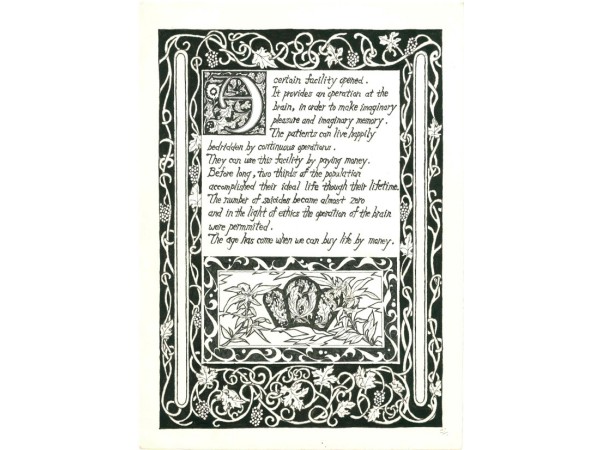 A certain facility opened.
It provides an operation at the
brain, in order to make imaginary
pleasure and imaginary memory.
The patients can live happily
bedridden by continuous operations.
They can use this facility by paying money.
Before long, two thirds of the population
accomplished their ideal life though their lifetime.
The number of suicides became almost zero
and in the light of ethics the operation of the brain
were permmited.
The age has come when we can buy life by money.